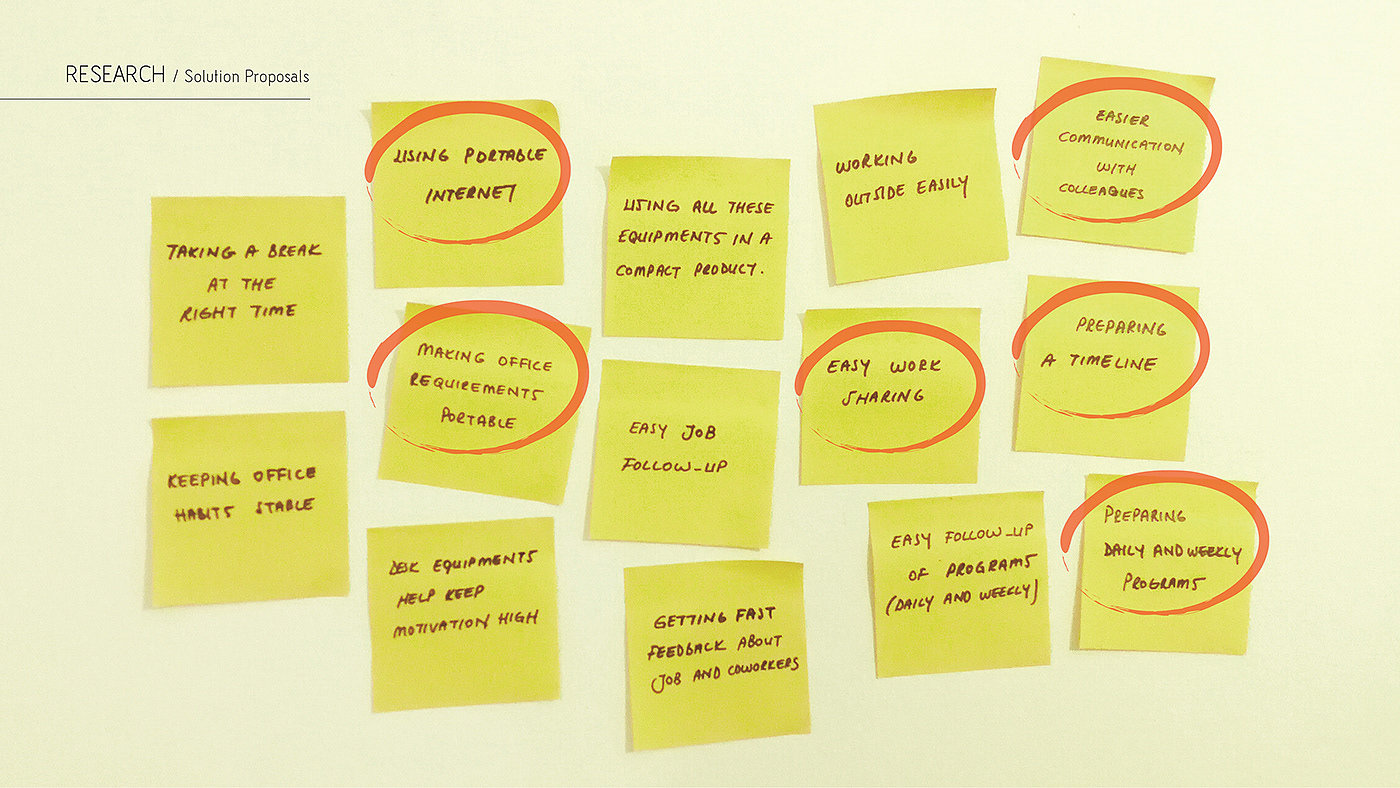 RESEARCH / Solution Proposals
TAKING A BREAK
AT THE
RIGHT TIME
KEEPING OFFICE
HABITS STABLE
USING PORTABLE
INTERNET
MAKING OFFICE
REQUIREMENTS
PORTABLE
DESK EQUIPMENTS
HELP KEEP
MOTIVATION HIGH
USING ALL THESE
EQUIPMENTS IN A
COMPACT PRODUCT.
EASY JOB
FOLLOW-UP
GETTING FAST
FEEDBACK ABOUT
JOB AND COWORKERS
WORKING
OUTSIDE EASILY
EASY WORK
SHARING
EASY FOLLOW-UP
OF PROGRAMS
(DAILY AND WEEKLY)
EASIER
COMMUNICATION
WITH
COLLEAGUES
PREPARING
A TIMELINE
PREPARING
DAILY AND WEEKLY
PROGRAMS